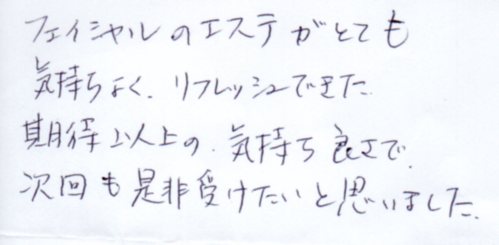 フェイシャルのエステがとても
気持ちよく、リフレッシュできた
期待以上の、気持ち良さで、
次回も是非受けたいと思いました。